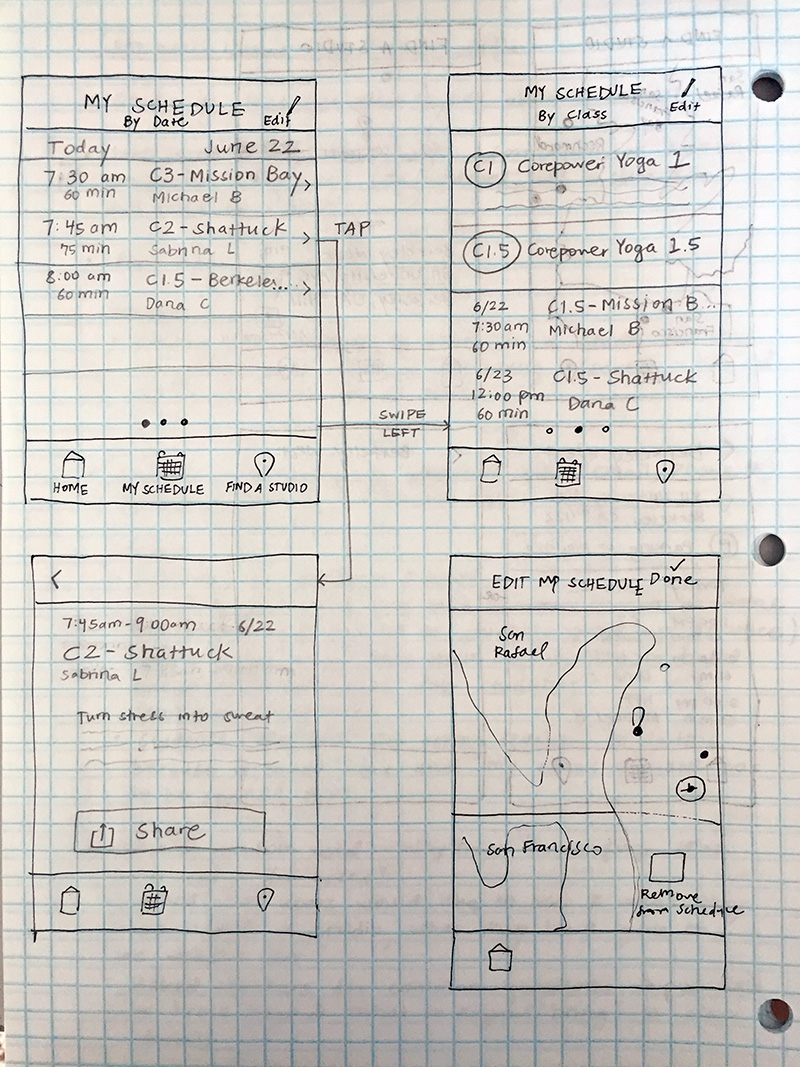 MY SCHEDULE
By Date
Edit
Today June 22
7:30 am C3-Mission Bay
60 min Michael B
7:45 am C2-Shattuck
75 min Sabrina L
8:00 am C1.5-Berkeley...
60 min Dana C
HOME
MY SCHEDULE
FIND A STUDIO
TAP
SWIPE
LEFT
MY SCHEDULE
By Class
Edit
C1 Corepower Yoga 1
C1.5 Corepower Yoga 1.5
6/22 C1.5-Mission B..
7:30am Michael B
60 min
6/23 C1.5-Shattuck
12:00 pm Dana C
60 min
<
7:45am-9:00am 6/22
C2-Shattuck
Sabrina L
Turn stress into sweat
Share
EDIT MY SCHEDULE Done
San
Rafael
San Francisco
Remove
from Schedule